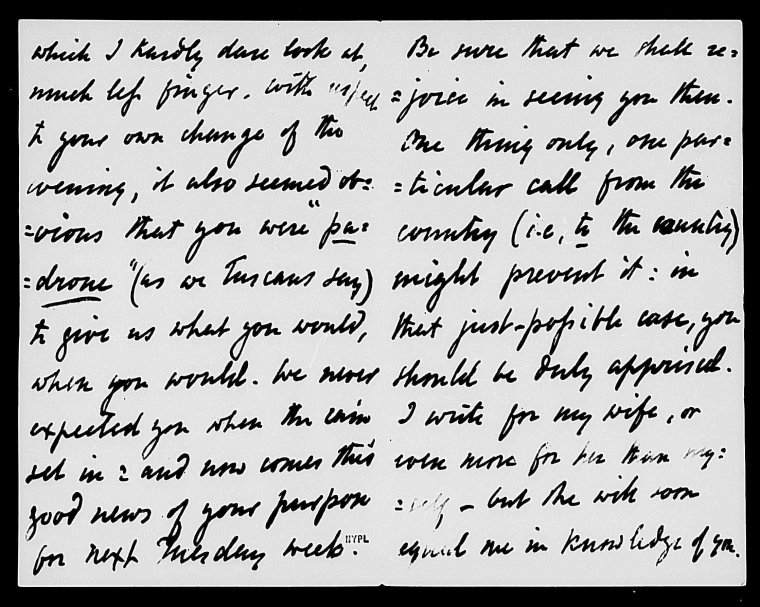 which I hardly dare look at,
much less finger. With respect
to your own change of the
evening, it also seemed ob=
=vious that you were "pa=
=drone" (as we Tuscans say)
to give us what you would,
when you would. We never
expected you when the rain
set in: and now comes this
good news of your purpose
for next Tuesday week.
NYPL
Be sure that we shall re=
=joice in seeing you then.
One thing only, one par=
=ticular call from the
country (i.e, to the country)
might prevent it: in
that just-possible case, you
should be duly apprised.
I write for my wife, or
even more for her than my=
=self – but she will soon
equal me in knowledge of you.